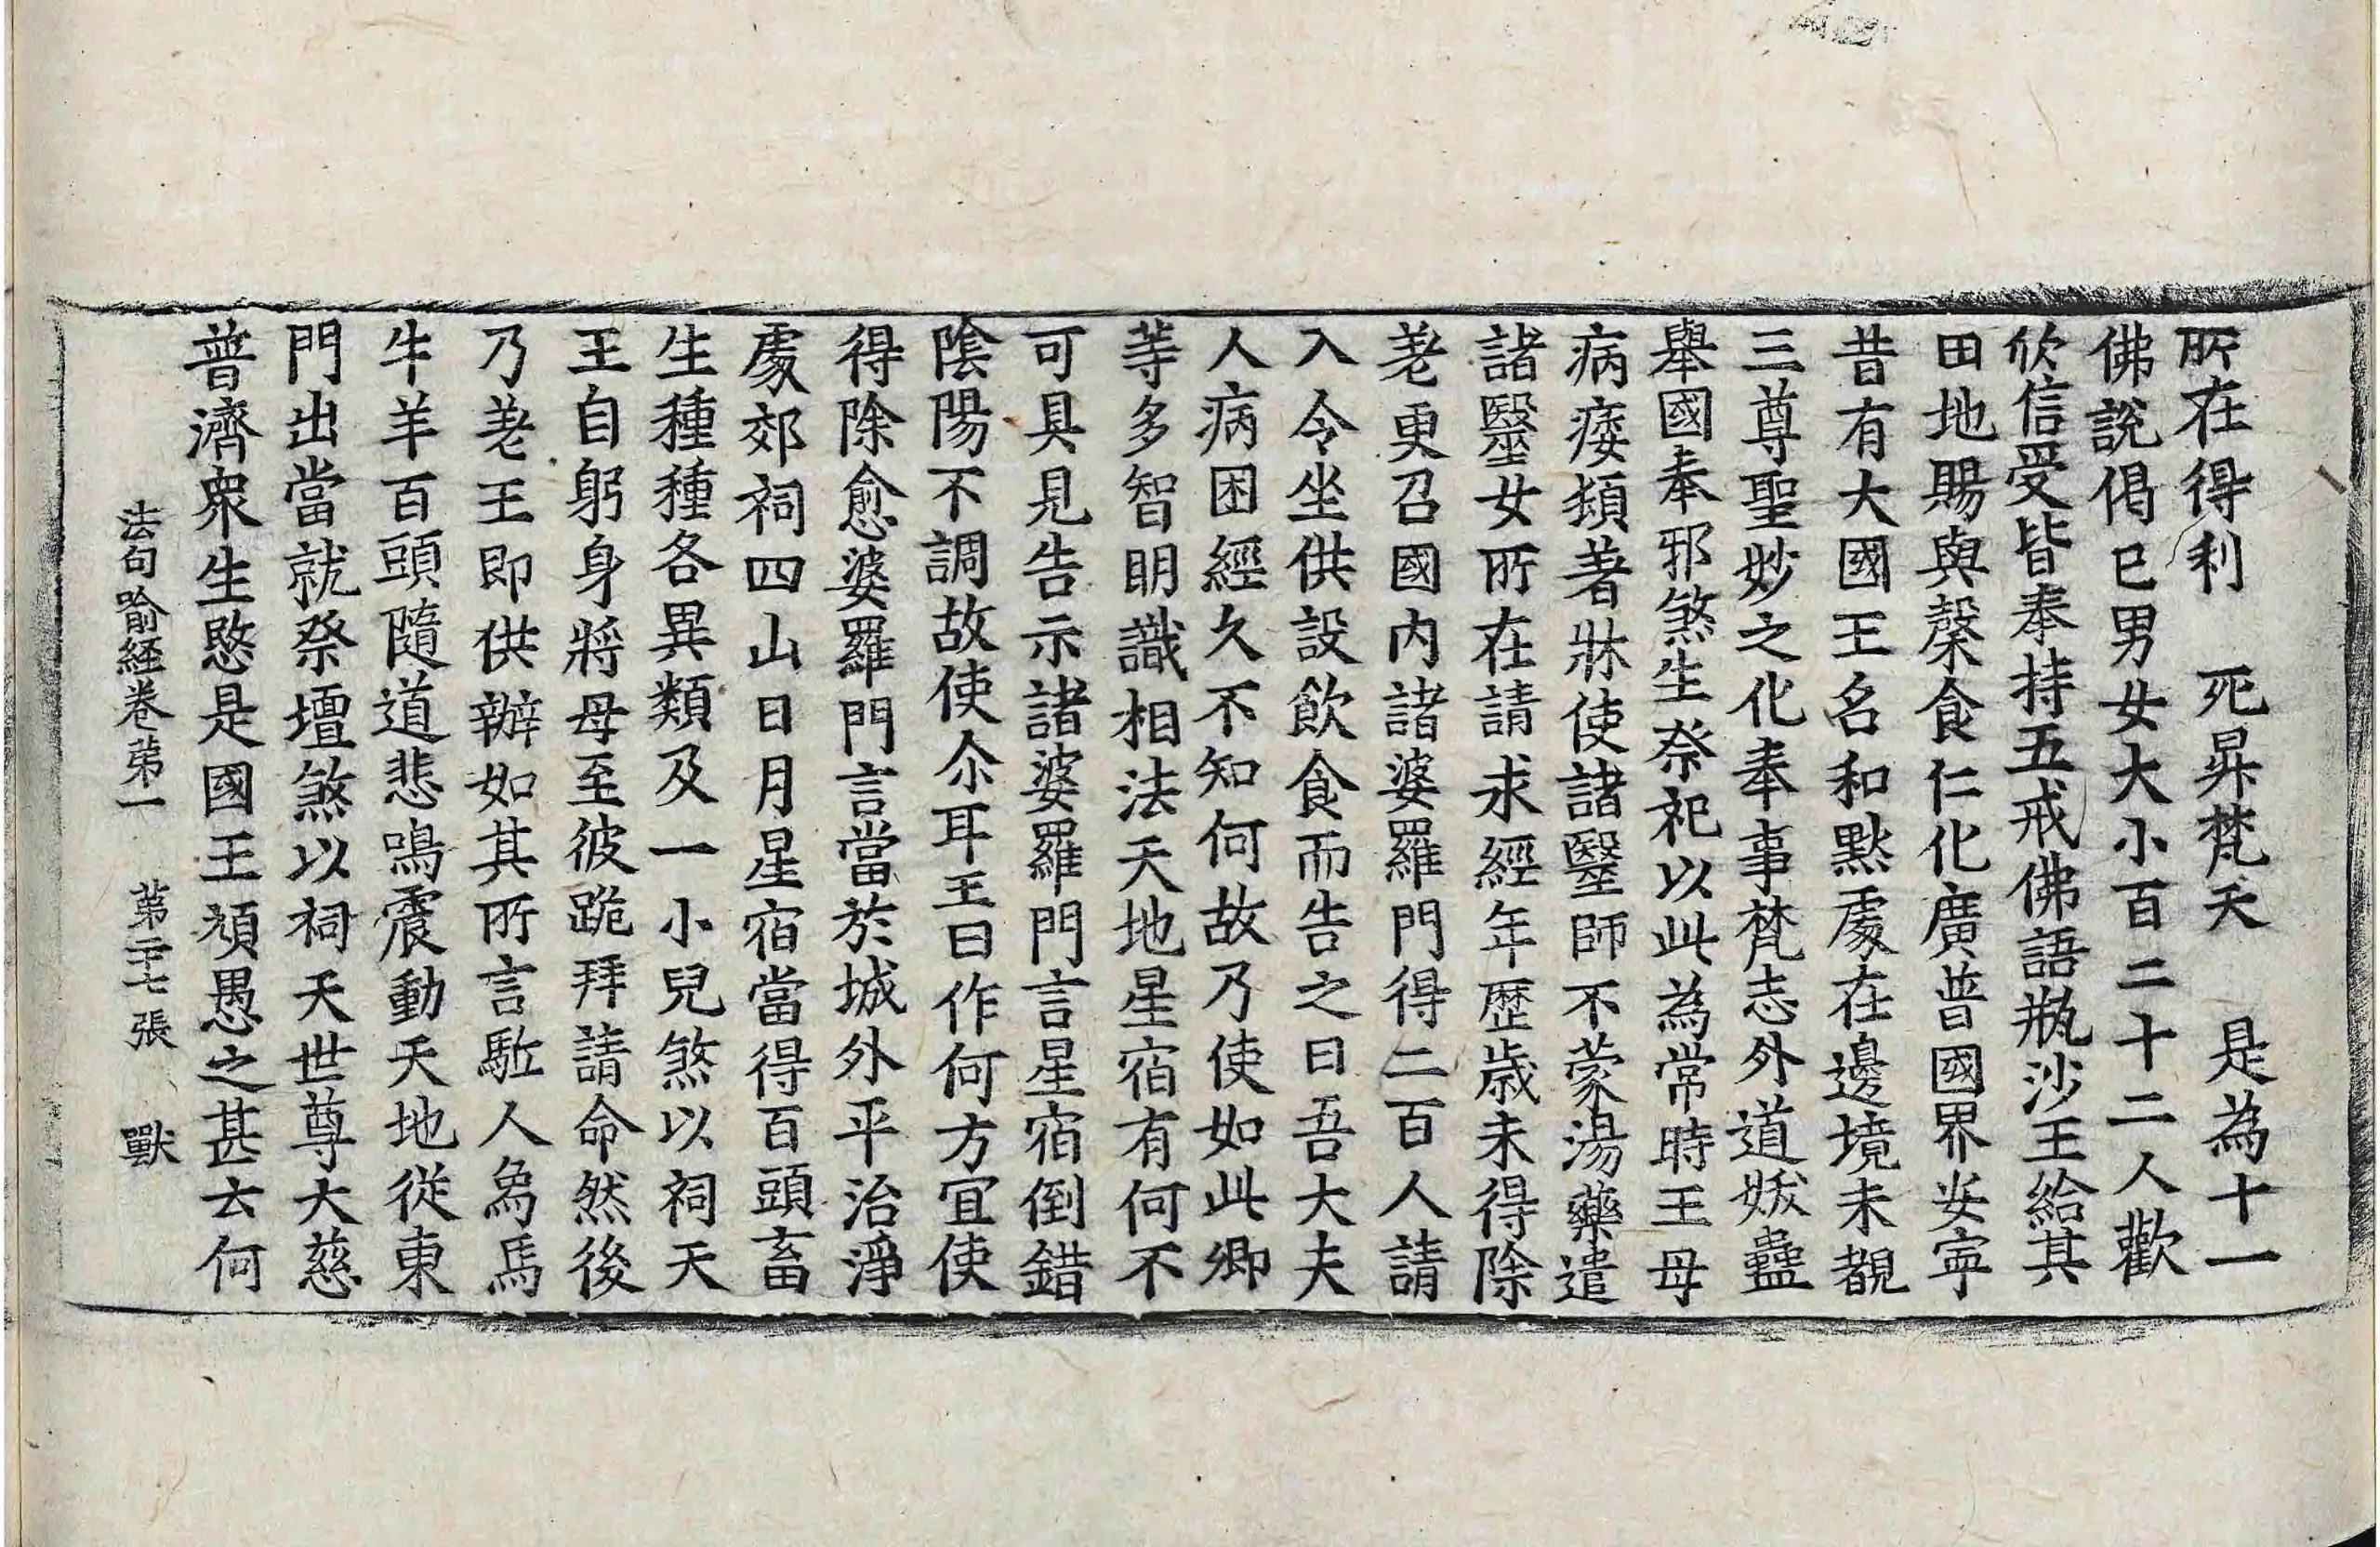 所在得利　死昇梵天　是為十一
佛說偈已男女大小百二十二人歡
欣信受皆奉持五戒佛語瓶沙王給其
田地賜與糓食仁化廣普國界安寧
昔有大國王名和黙處在邊境未覩
三尊聖妙之化奉事梵志外道妖蠱
舉國奉邪煞生祭祀以此為常時王母
病痿頓著牀使諸毉師不蒙湯藥遣
諸毉女所在請求經年歷歲未得除
差更召國內諸婆羅門得二百人請
入令坐供設飲食而告之曰吾大夫
人病困經久不知何故乃使如此卿
等多智明識相法天地星宿有何不
可具見告示諸婆羅門言星宿倒錯
陰陽不調故使尒耳王曰作何方宜使
得除愈婆羅門言當於城外平治淨
處郊祠四山日月星宿當得百頭畜
生種種各異類及一小兒煞以祠天
王自躬身將母至彼跪拜請命然後
乃差王即供辦如其所言駈人象馬
牛羊百頭隨道悲鳴震動天地從東
門出當就祭壇煞以祠天世尊大慈
普濟衆生愍是國王頑愚之甚云何
法句喻經卷第一　第二十七張　獸